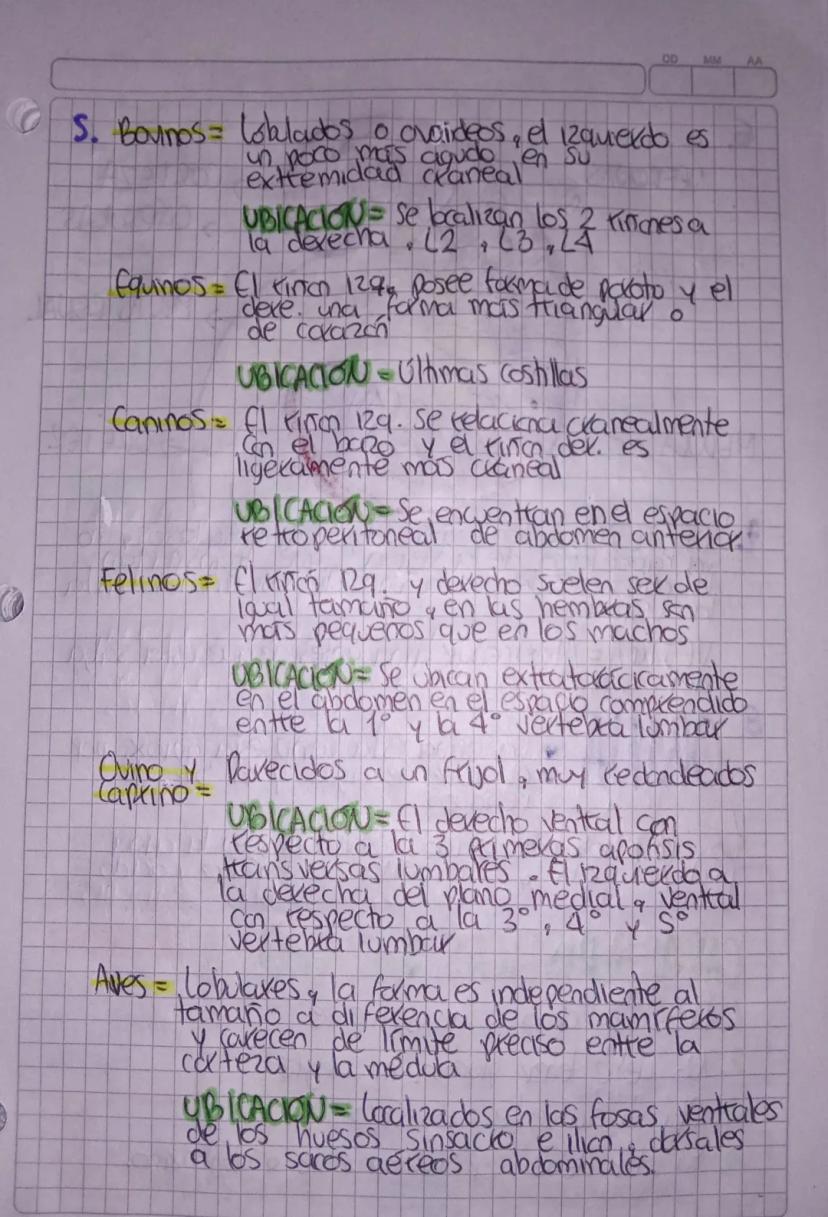 DD MM AA
5. Bovinos = Lobulados o ovoideos, el izquierdo es
un poco más agudo en su
extremidad craneal
UBICACION = Se localizan los 2 riñones a
la derecha, L2, L3, L4
Equinos = El riñon izq, posee forma de poroto y el
dere. una forma más triangular o
de corazón
UBICACION = Últimas costillas
Caninos = El riñon izq. se relaciona cranealmente
con el bazo y el riñon der. es
ligeramente más craneal
UBICACION = Se encuentran en el espacio
retroperitoneal de abdomen anterior.
Felinos = El riñon izq. y derecho suelen ser de
igual tamaño, en las hembras son
más pequeños que en los machos
UBICACION = Se ubican extratorácicamente
en el abdomen en el espacio comprendido
entre la 1° y la 4° vertebra lumbar
Ovino y Parecidos a un frijol, muy redondeados
Caprino =
UBICACION = El derecho ventral con
respecto a la 3 primeras apofisis
transversas lumbares. El izquierdo a
la derecha del plano medial, ventral
con respecto a la 3°, 4° y 5°
vertebra lumbar
Aves = Lobulares, la forma es independiente al
tamaño a diferencia de los mamíferos
y carecen de límite preciso entre la
corteza y la médula
UBICACION = Localizados en las fosas ventrales
de los huesos sinsacro e ilion, dorsales
a los sacos aéreos abdominales.